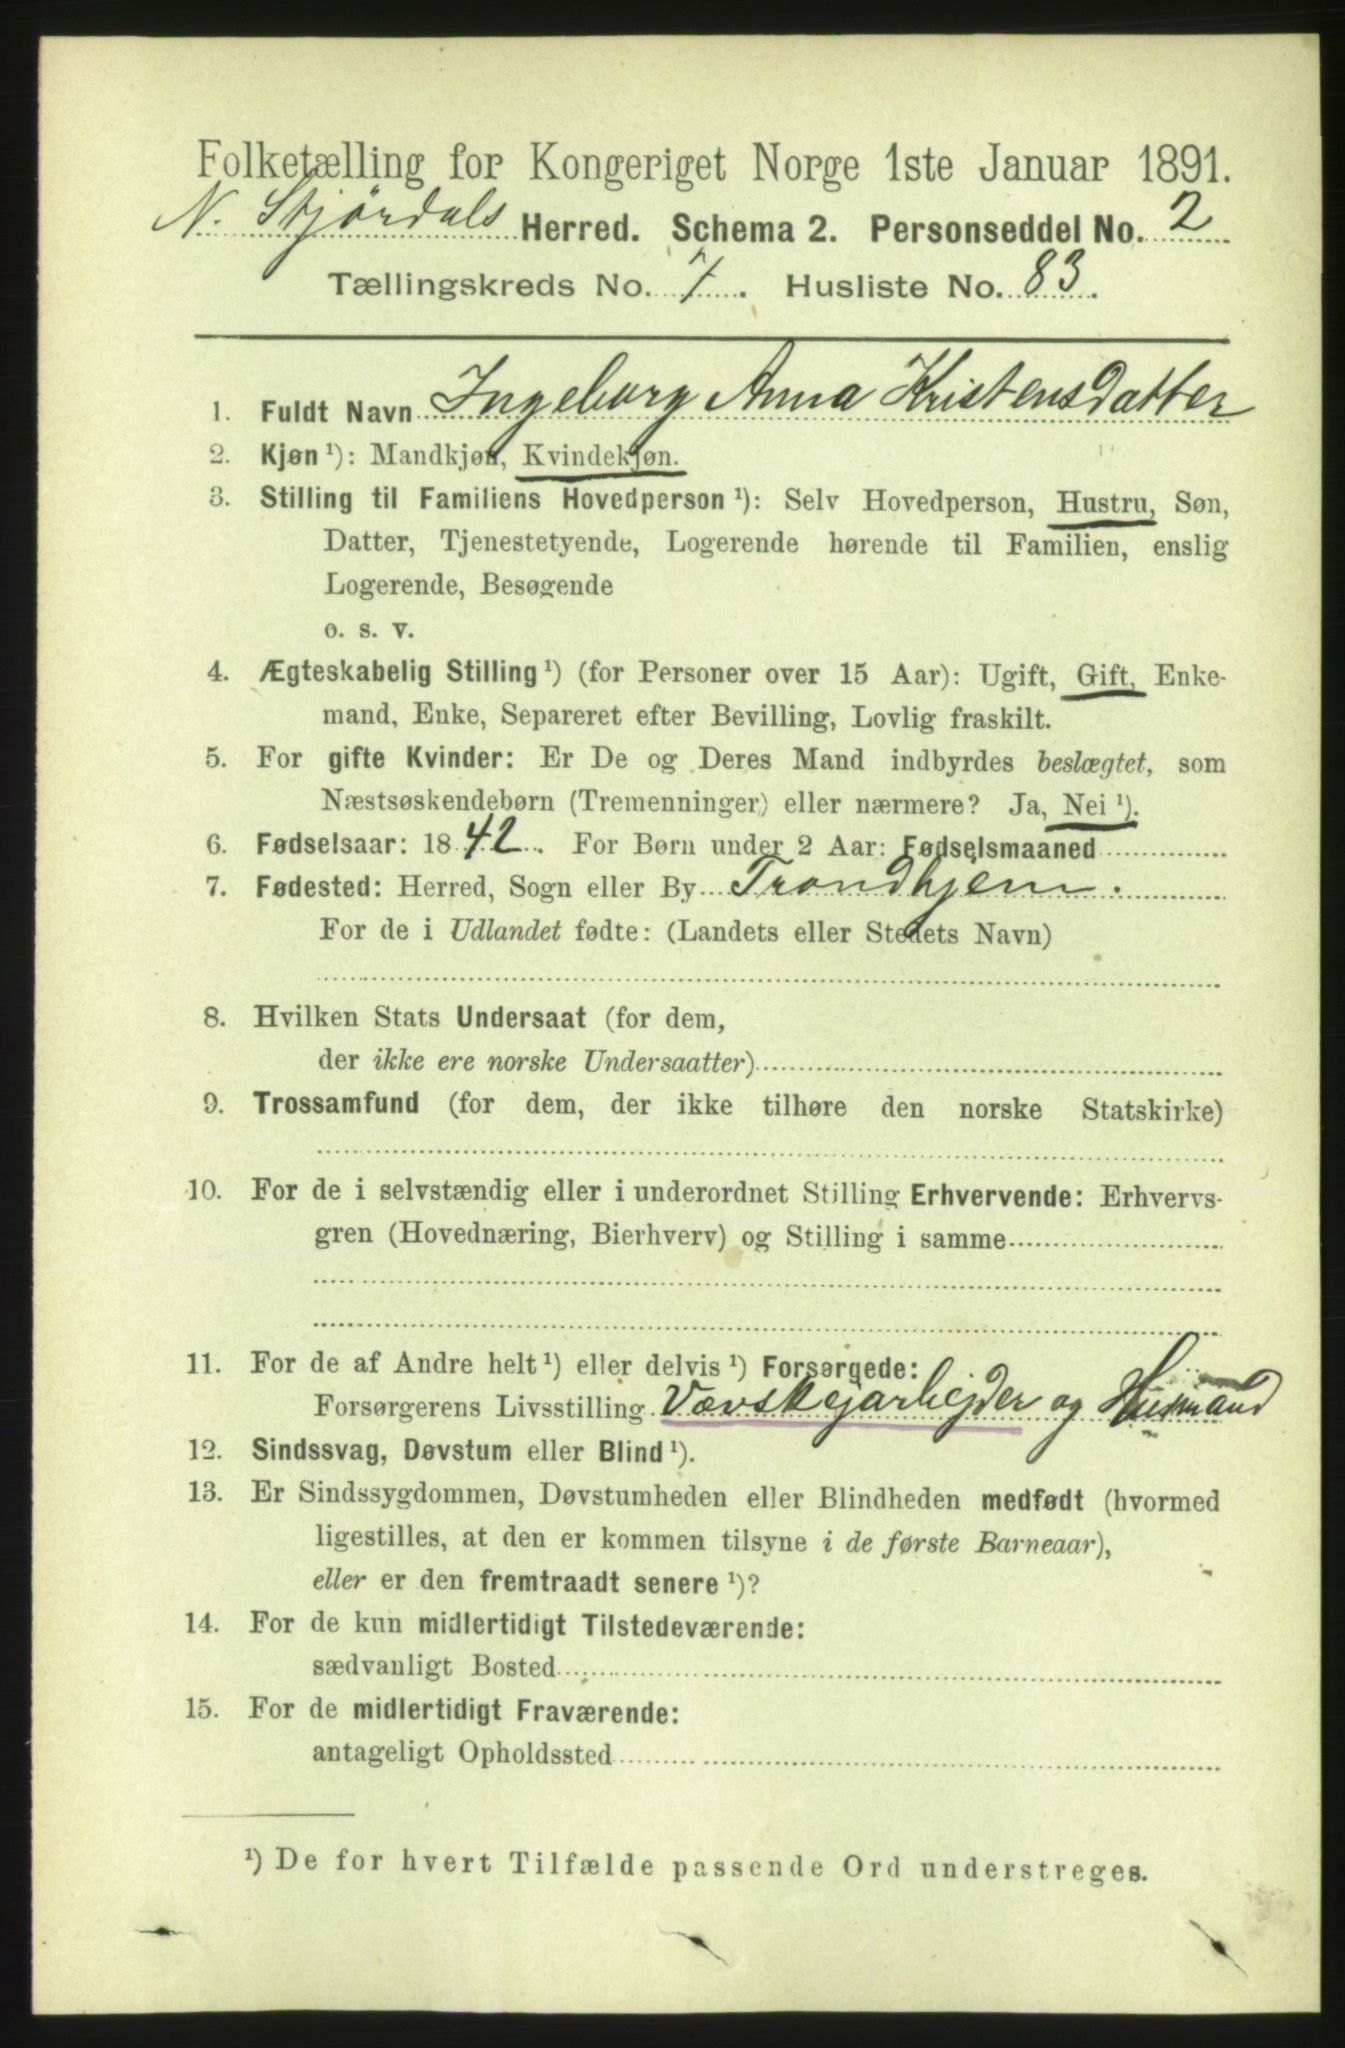 Folketælling for Kongeriget Norge 1ste Januar 1891.
N. Stjørdals Herred. Schema 2. Personseddel No. 2
Tællingskreds No. 7. Husliste No. 83.
1. Fuldt Navn Ingeborg Anna Kristensdatter
2. Kjøn ¹): Mandkjøn, Kvindekjøn.
3. Stilling til Familiens Hovedperson ¹): Selv Hovedperson, Hustru, Søn,
Datter, Tjenestetyende, Logerende hørende til Familien, enslig
Logerende, Besøgende
o. s. v.
4. Ægteskabelig Stilling ¹) (for Personer over 15 Aar): Ugift, Gift, Enke-
mand, Enke, Separeret efter Bevilling, Lovlig fraskilt.
5. For gifte Kvinder: Er De og Deres Mand indbyrdes beslægtet, som
Næstsøskendebørn (Tremenninger) eller nærmere? Ja, Nei ¹).
6. Fødselsaar: 1842. For Børn under 2 Aar: Fødselsmaaned
7. Fødested: Herred, Sogn eller By Trondhjem.
For de i Udlandet fødte: (Landets eller Stedets Navn)
8. Hvilken Stats Undersaat (for dem,
der ikke ere norske Undersaatter)
9. Trossamfund (for dem, der ikke tilhøre den norske Statskirke)
10. For de i selvstændig eller i underordnet Stilling Erhvervende: Erhvervs-
gren (Hovednæring, Bierhverv) og Stilling i samme
11. For de af Andre helt ¹) eller delvis ¹) Forsørgede:
Forsørgerens Livsstilling Vævskejarbejder og Husmand
12. Sindssvag, Døvstum eller Blind ¹).
13. Er Sindssygdommen, Døvstumheden eller Blindheden medfødt (hvormed
ligestilles, at den er kommen tilsyne i de første Barneaar),
eller er den fremtraadt senere ¹)?
14. For de kun midlertidigt Tilstedeværende:
sædvanligt Bosted
15. For de midlertidigt Fraværende:
antageligt Opholdssted
¹) De for hvert Tilfælde passende Ord understreges.